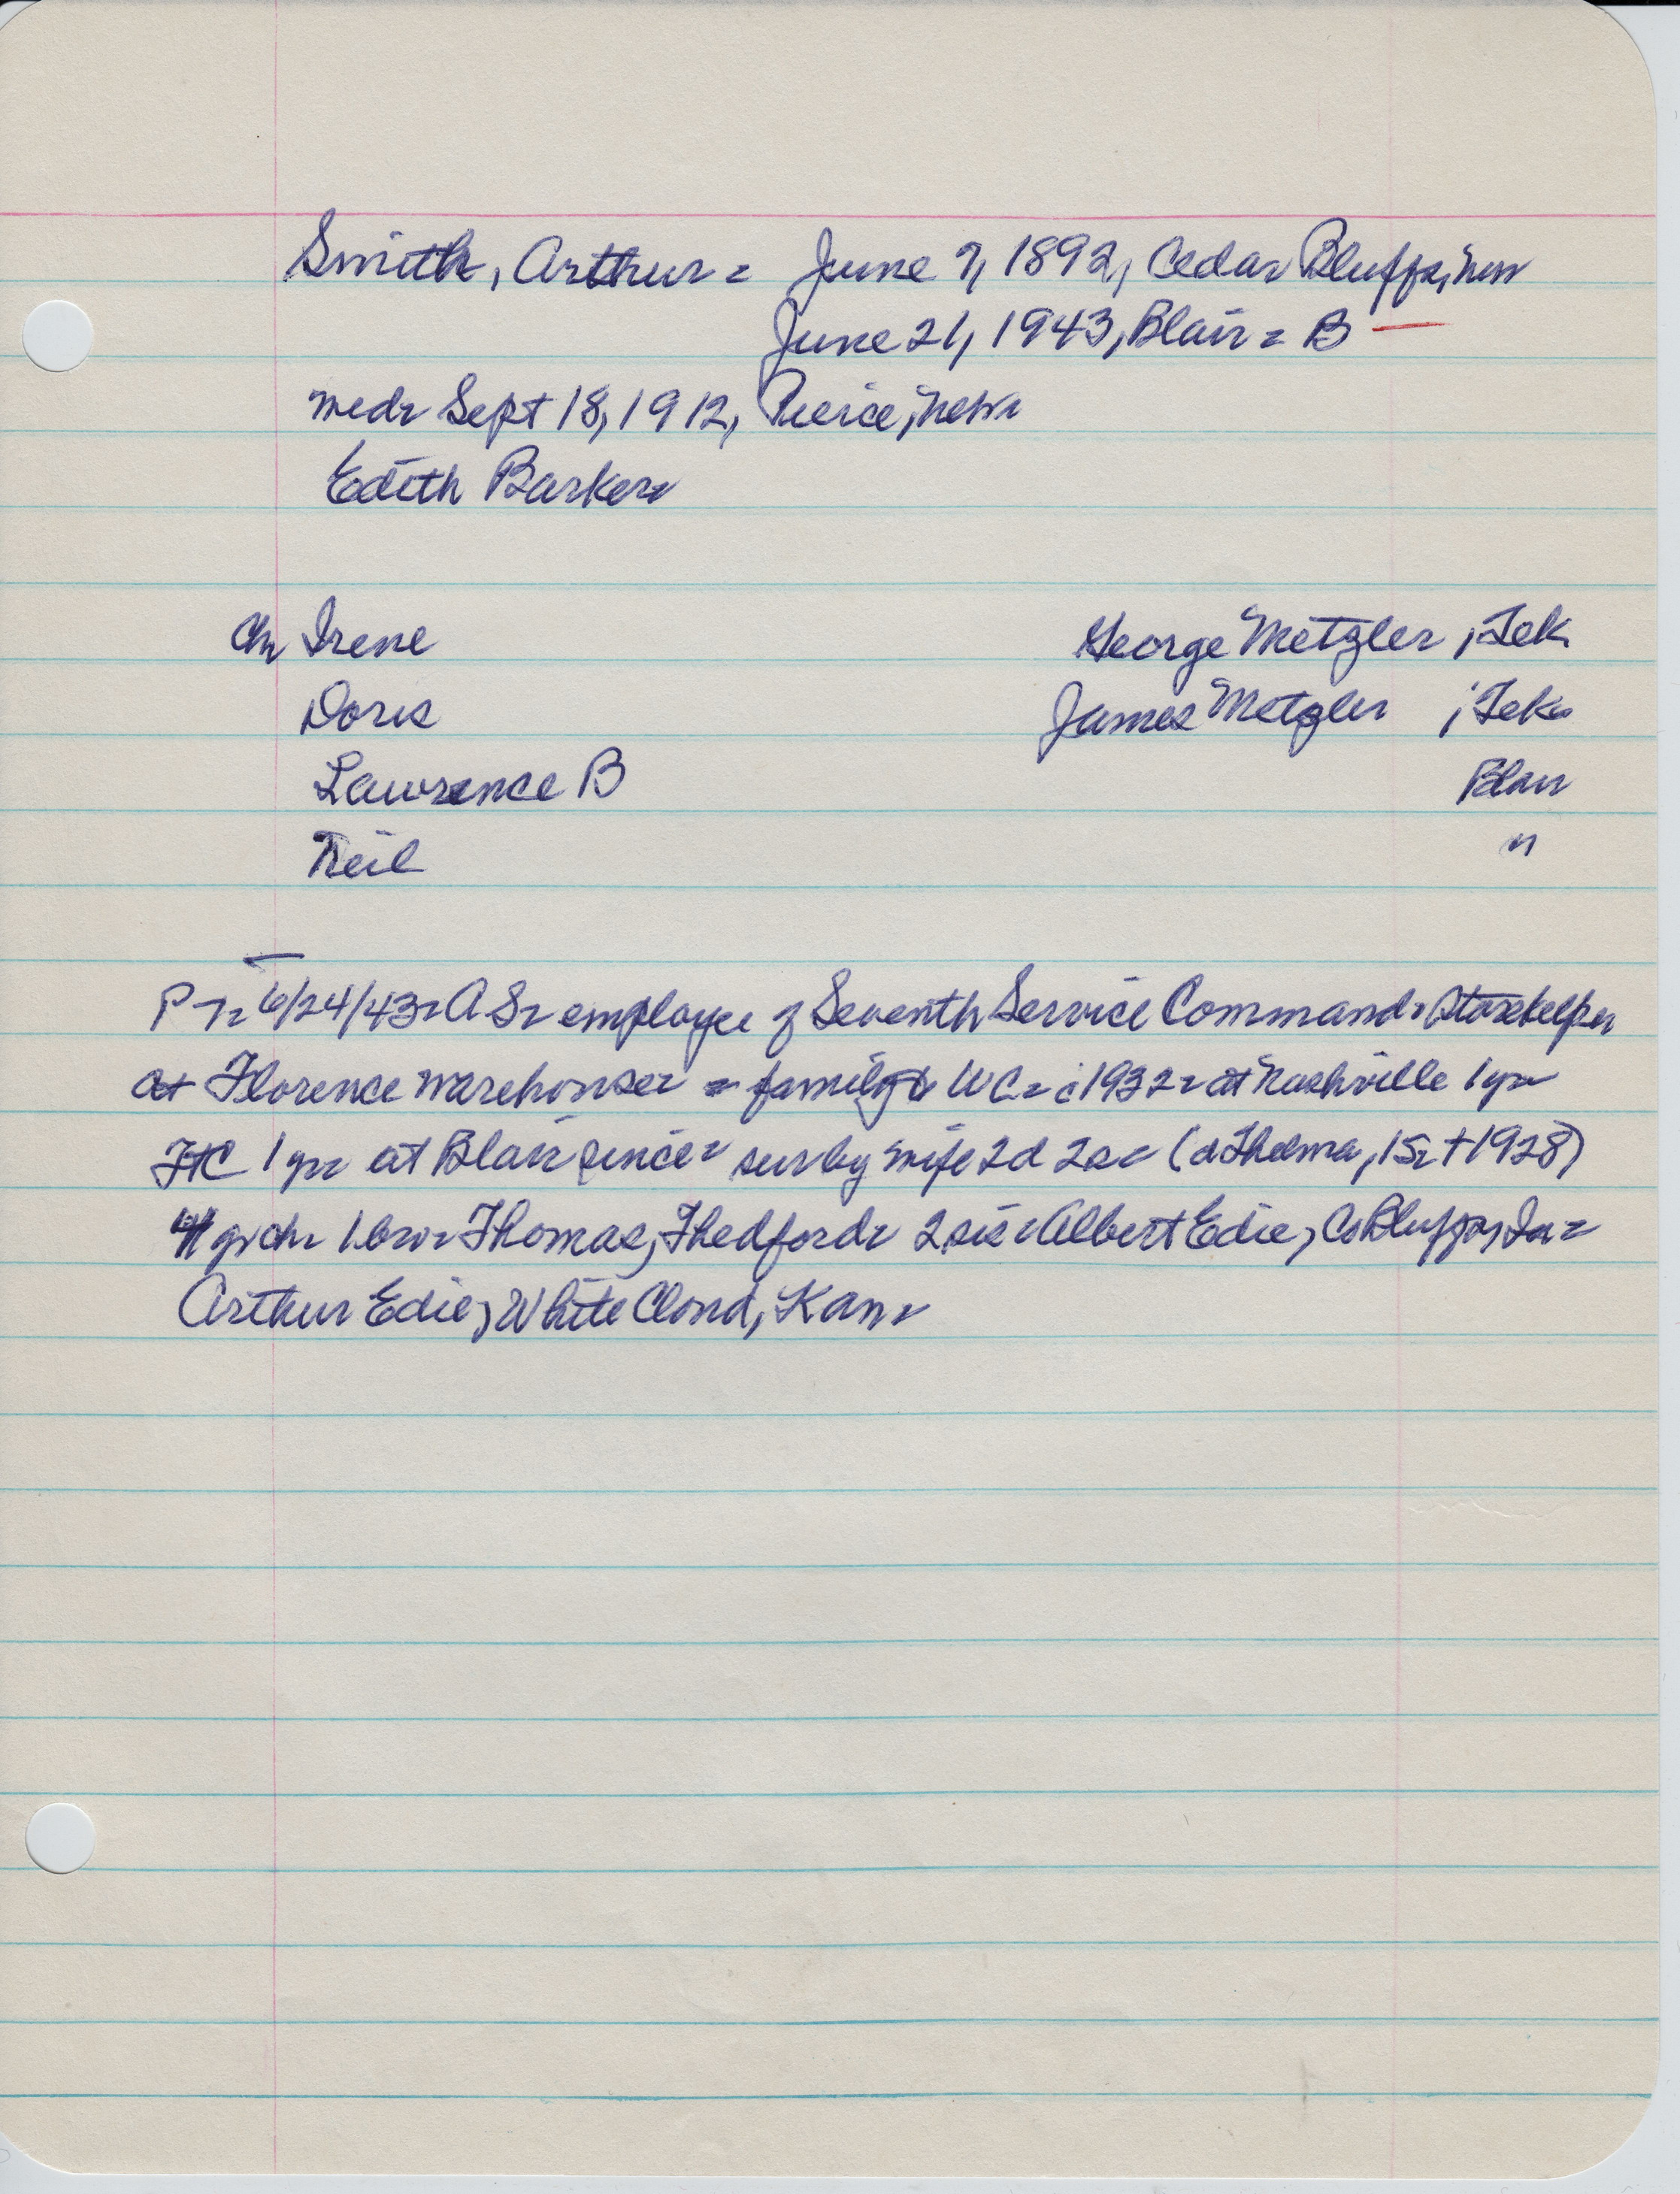 Smith, Arthur = June 7, 1892, Cedar Bluffs, Neb
June 21, 1943, Blair = B —
md Sept 18, 1912, Pierce, Nebr
Edith Barker
Ch Irene George Metzler, Tek
Doris James Metzler, Tek
Lawrence B Blair
Neil "
P T 6/24/43 A S employee of Seventh Service Command Storekeeper
at Florence warehouse = family to WC c1932 at Nashville 1 yr
FtC 1 yr at Blair since sur by wife 2d 2s (d Thelma, 15 †1928)
4 grch 1 bro Thomas, Thedford 2 sis Albert Edie, Co Bluffs, Ia =
Arthur Edie, White Cloud, Kan